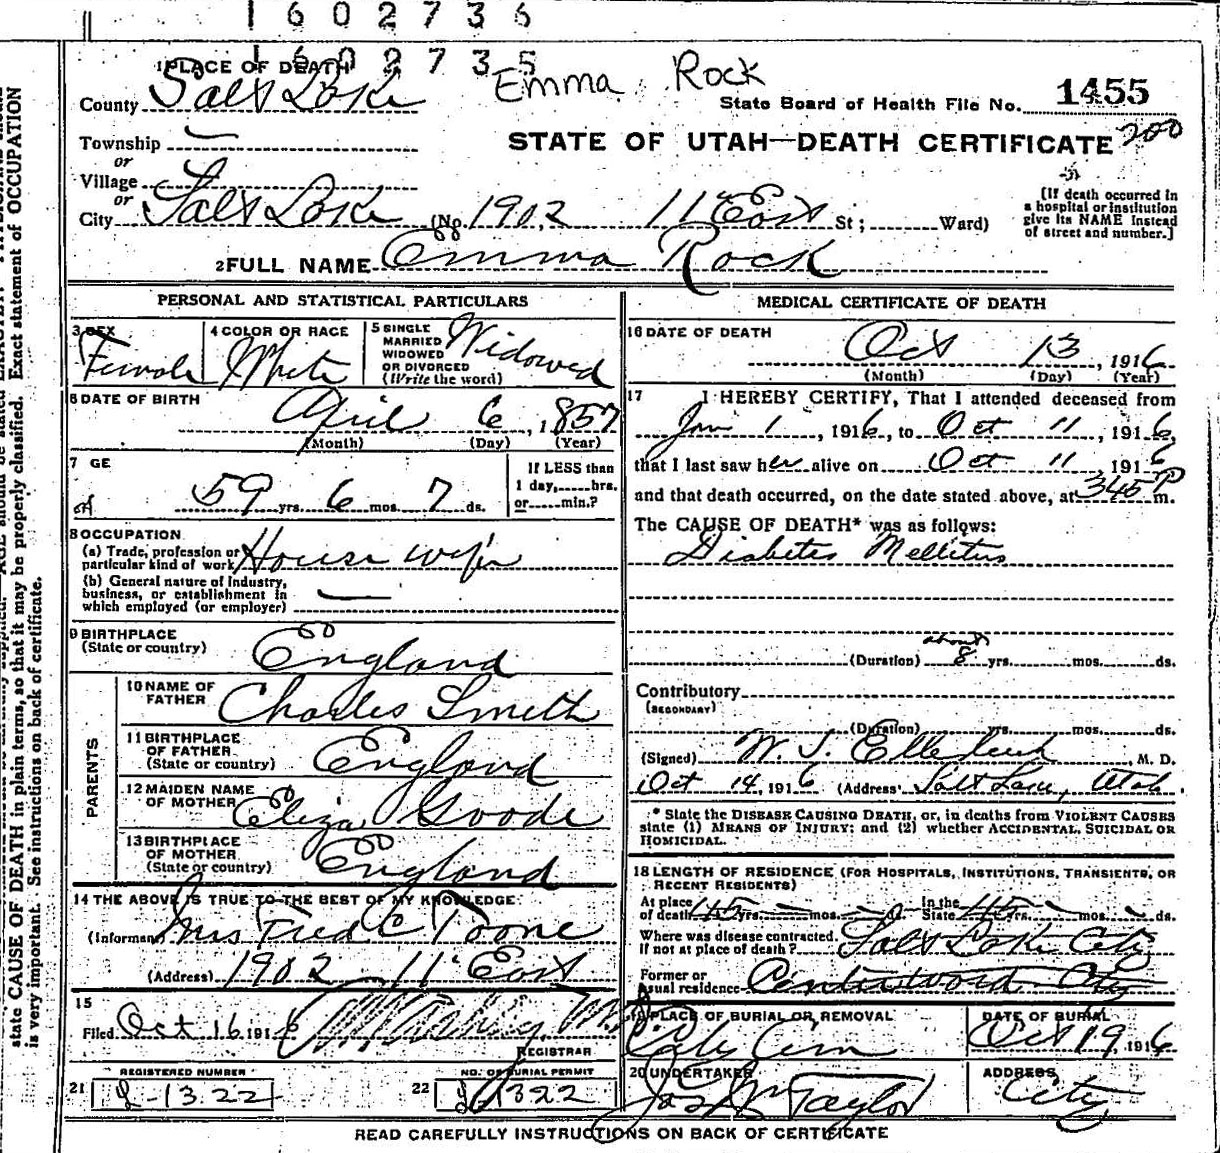 1 6 0 2 7 3 6
1 6 0 2 7 3 5
1 PLACE OF DEATH
Emma Rock
County Salt Lake
State Board of Health File No. 1455
Township —
STATE OF UTAH—DEATH CERTIFICATE 200
or
Village
or
City Salt Lake (No. 1902 11 East St; Ward)
[If death occurred in
a hospital or institution
give its NAME instead
of street and number.]
2 FULL NAME Emma Rock
PERSONAL AND STATISTICAL PARTICULARS
3 SEX Female
4 COLOR OR RACE White
5 SINGLE
MARRIED
WIDOWED
OR DIVORCED
(Write the word) Widowed
6 DATE OF BIRTH April 6, 1857
(Month) (Day) (Year)
7 GE
59 yrs. 6 mos. 7 ds.
If LESS than
1 day, hrs.
or min.?
8 OCCUPATION
(a) Trade, profession or
particular kind of work House wife
(b) General nature of industry,
business, or establishment in
which employed (or employer) —
9 BIRTHPLACE
(State or country) England
PARENTS
10 NAME OF
FATHER Charles Smith
11 BIRTHPLACE
OF FATHER
(State or country) England
12 MAIDEN NAME
OF MOTHER Eliza Goode
13 BIRTHPLACE
OF MOTHER
(State or country) England
14 THE ABOVE IS TRUE TO THE BEST OF MY KNOWLEDGE
(Informant) Mrs Fred C Toone
(Address) 1902 11 East
15
Filed Oct 16 1916
REGISTRAR
REGISTERED NUMBER
21 1322
NO. OF BURIAL PERMIT
22 1322
MEDICAL CERTIFICATE OF DEATH
16 DATE OF DEATH
Oct 13, 1916
(Month) (Day) (Year)
17 I HEREBY CERTIFY, That I attended deceased from
Jan 1, 1916, to Oct 11, 1916,
that I last saw her alive on Oct 11, 1916
and that death occurred, on the date stated above, at 345 P m.
The CAUSE OF DEATH* was as follows:
Diabetes Mellitus
about
(Duration) 8 yrs. mos. ds.
Contributory
(SECONDARY)
(Duration) yrs. mos. ds.
(Signed) W. J. M. D.
Oct 14, 1916 (Address) Salt Lake, Utah.
* State the DISEASE CAUSING DEATH, or, in deaths from VIOLENT CAUSES
state (1) MEANS OF INJURY; and (2) whether ACCIDENTAL, SUICIDAL OR
HOMICIDAL.
18 LENGTH OF RESIDENCE (FOR HOSPITALS, INSTITUTIONS, TRANSIENTS, OR
RECENT RESIDENTS)
At place
of death 45 yrs. — mos. — ds. In the
State 45 yrs. — mos. — ds.
Where was disease contracted.
If not at place of death? Salt Lake City
Former or
usual residence City
19 PLACE OF BURIAL OR REMOVAL
City Cem
DATE OF BURIAL
Oct 19, 1916
20 UNDERTAKER
Jos Wm Taylor
ADDRESS
City
READ CAREFULLY INSTRUCTIONS ON BACK OF CERTIFICATE
state CAUSE OF DEATH in plain terms, so that it may be properly classified. Exact statement of OCCUPATION
is very important. See instructions on back of certificate.